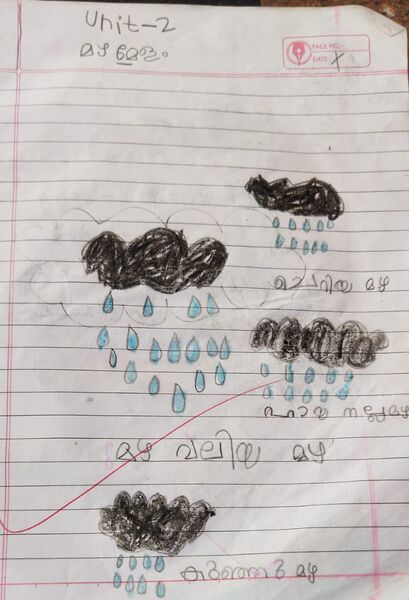 Unit-2
മഴ മേളം
PAGE NO.
DATE: X
ചെറിയ മഴ
മഴ വലിയ മഴ
മഴ